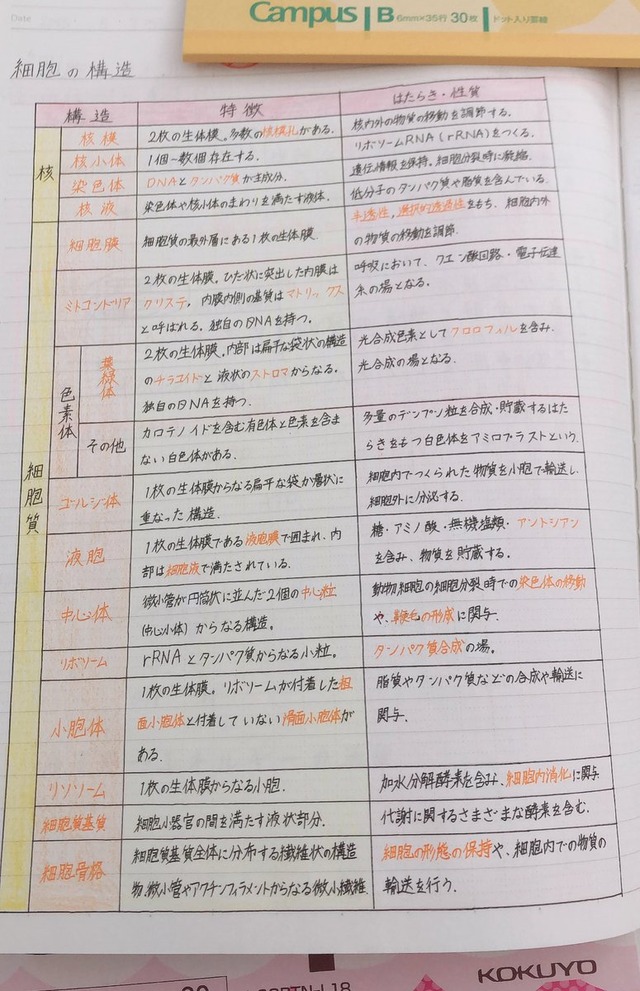 Date
Campus B 6mm×35行 30枚 ドット入り罫線
細胞の構造
構造 特徴 はたらき・性質
核
核膜 2枚の生体膜。多数の核膜孔がある. 核内外の物質の移動を調節する.
核小体 1個~数個存在する. リボソームRNA(rRNA)をつくる.
染色体 DNAとタンパク質が主成分. 遺伝情報を保持。細胞分裂時に凝縮.
核液 染色体や核小体のまわりを満たす液体. 低分子のタンパク質や脂質を含んでいる.
細胞質
細胞膜 細胞質の最外層にある1枚の生体膜. 半透性,選択的透過性をもち、細胞内外
の物質の移動を調節.
ミトコンドリア 2枚の生体膜。ひだ状に突出した内膜は
クリステ, 内膜内側の基質はマトリックス
と呼ばれる. 独自のDNAを持つ.
呼吸において、クエン酸回路・電子伝達
系の場となる.
色素体
葉緑体 2枚の生体膜.内部は扁平な袋状の構造
のチラコイドと液状のストロマからなる.
独自のDNAを持つ.
光合成色素としてクロロフィルを含み.
光合成の場となる.
その他 カロテノイドを含む有色体と色素を含ま
ない白色体がある.
多量のデンプン粒を合成・貯蔵するはた
らきをもつ白色体をアミロプラストという.
ゴルジ体 1枚の生体膜からなる扁平な袋が層状に
重なった構造.
細胞内でつくられた物質を小胞で輸送し.
細胞外に分泌する.
液胞 1枚の生体膜である液胞膜で囲まれ、内
部は細胞液で満たされている.
糖・アミノ酸・無機塩類・アントシアン
を含み、物質を貯蔵する.
中心体 微小管が円筒状に並んだ2個の中心粒
(中心小体)からなる構造。
動物細胞の細胞分裂時での染色体の移動
や、鞭毛の形成に関与.
リボソーム rRNAとタンパク質からなる小粒. タンパク質合成の場.
小胞体 1枚の生体膜。リボソームが付着した粗
面小胞体と付着していない滑面小胞体が
ある.
脂質やタンパク質などの合成や輸送に
関与.
リソソーム 1枚の生体膜からなる小胞. 加水分解酵素を含み、細胞内消化に関与
細胞質基質 細胞小器官の間を満たす液状部分. 代謝に関するさまざまな酵素を含む.
細胞骨格 細胞質基質全体に分布する繊維状の構造
物.微小管やアクチンフィラメントからなる微小繊維.
細胞の形態の保持や、細胞内での物質の
輸送を行う.
KOKUYO